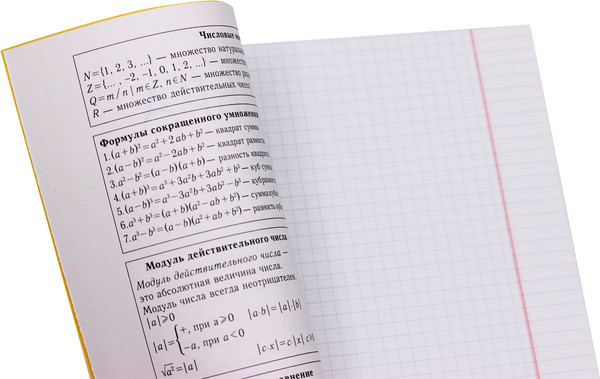 Числовые
N={1, 2, 3, ...} — множество
Z={... , -2, -1, 0, 1, 2, ...} — множество
Q=m/n | m∈Z, n∈N — множество
R — множество действительных чисел
Формулы сокращенного умножени
1.(a+b)²=a²+2ab+b² — квадрат суммы
2.(a−b)²=a²−2ab+b² — квадрат разности
3.a²−b²=(a−b)(a+b) — разность квадрато
4.(a+b)³=a³+3a²b+3ab²+b³ — куб суммы
5.(a−b)³=a³−3a²b+3ab²−b³ — куб разност
6.a³+b³=(a+b)(a²−ab+b²) — сумма кубов
7.a³−b³=(a−b)(a²+ab+b²) — разность кубо
Модуль действительного числа
Модуль действительного числа –
это абсолютная величина числа.
Модуль числа всегда неотрицателен.
|a|⩾0
|a|={+, при a⩾0 |a·b|=|a|·|b|
−a, при a<0
√a²=|a| |c·x|=c·|x|